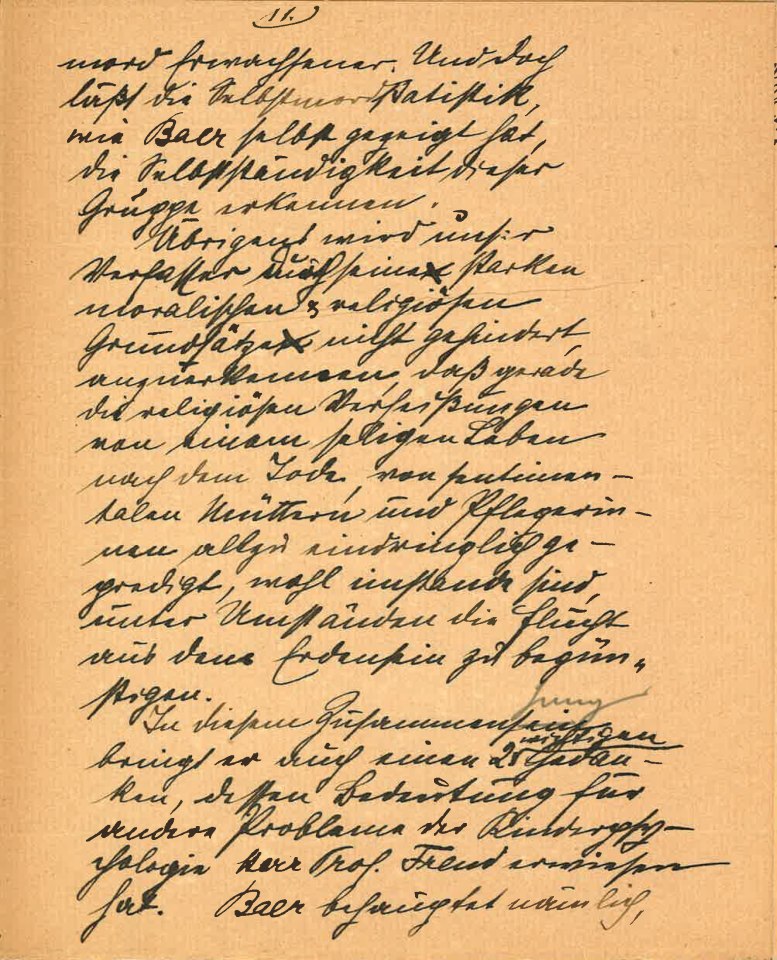 11.
mord Erwachsener. Und doch
läßt die Selbstmordstatistik,
wie Baer selbst gezeigt hat,
die Selbstständigkeit dieser
Gruppe erkennen.
Übrigens wird unser
Verfasser durch seine starken
moralischen & religiösen
Grundsätze nicht gehindert,
anzuerkennen, daß gerade
die religiösen Verheißungen
von einem seligen Leben
nach dem Tode, von sentimen-
talen Müttern und Pflegerin-
nen allzu eindringlich ge-
predigt, wohl imstande sind,
unter Umständen die Flucht
aus dem Erdensein zu begün-
stigen.
hang
In diesem Zusammen
wichtigen
bringt er auch einen Gedan-
ken, dessen Bedeutung für
andere Probleme der Kinderpsy-
chologie Herr Prof. Freud erwiesen
hat. Baer behauptet nämlich,